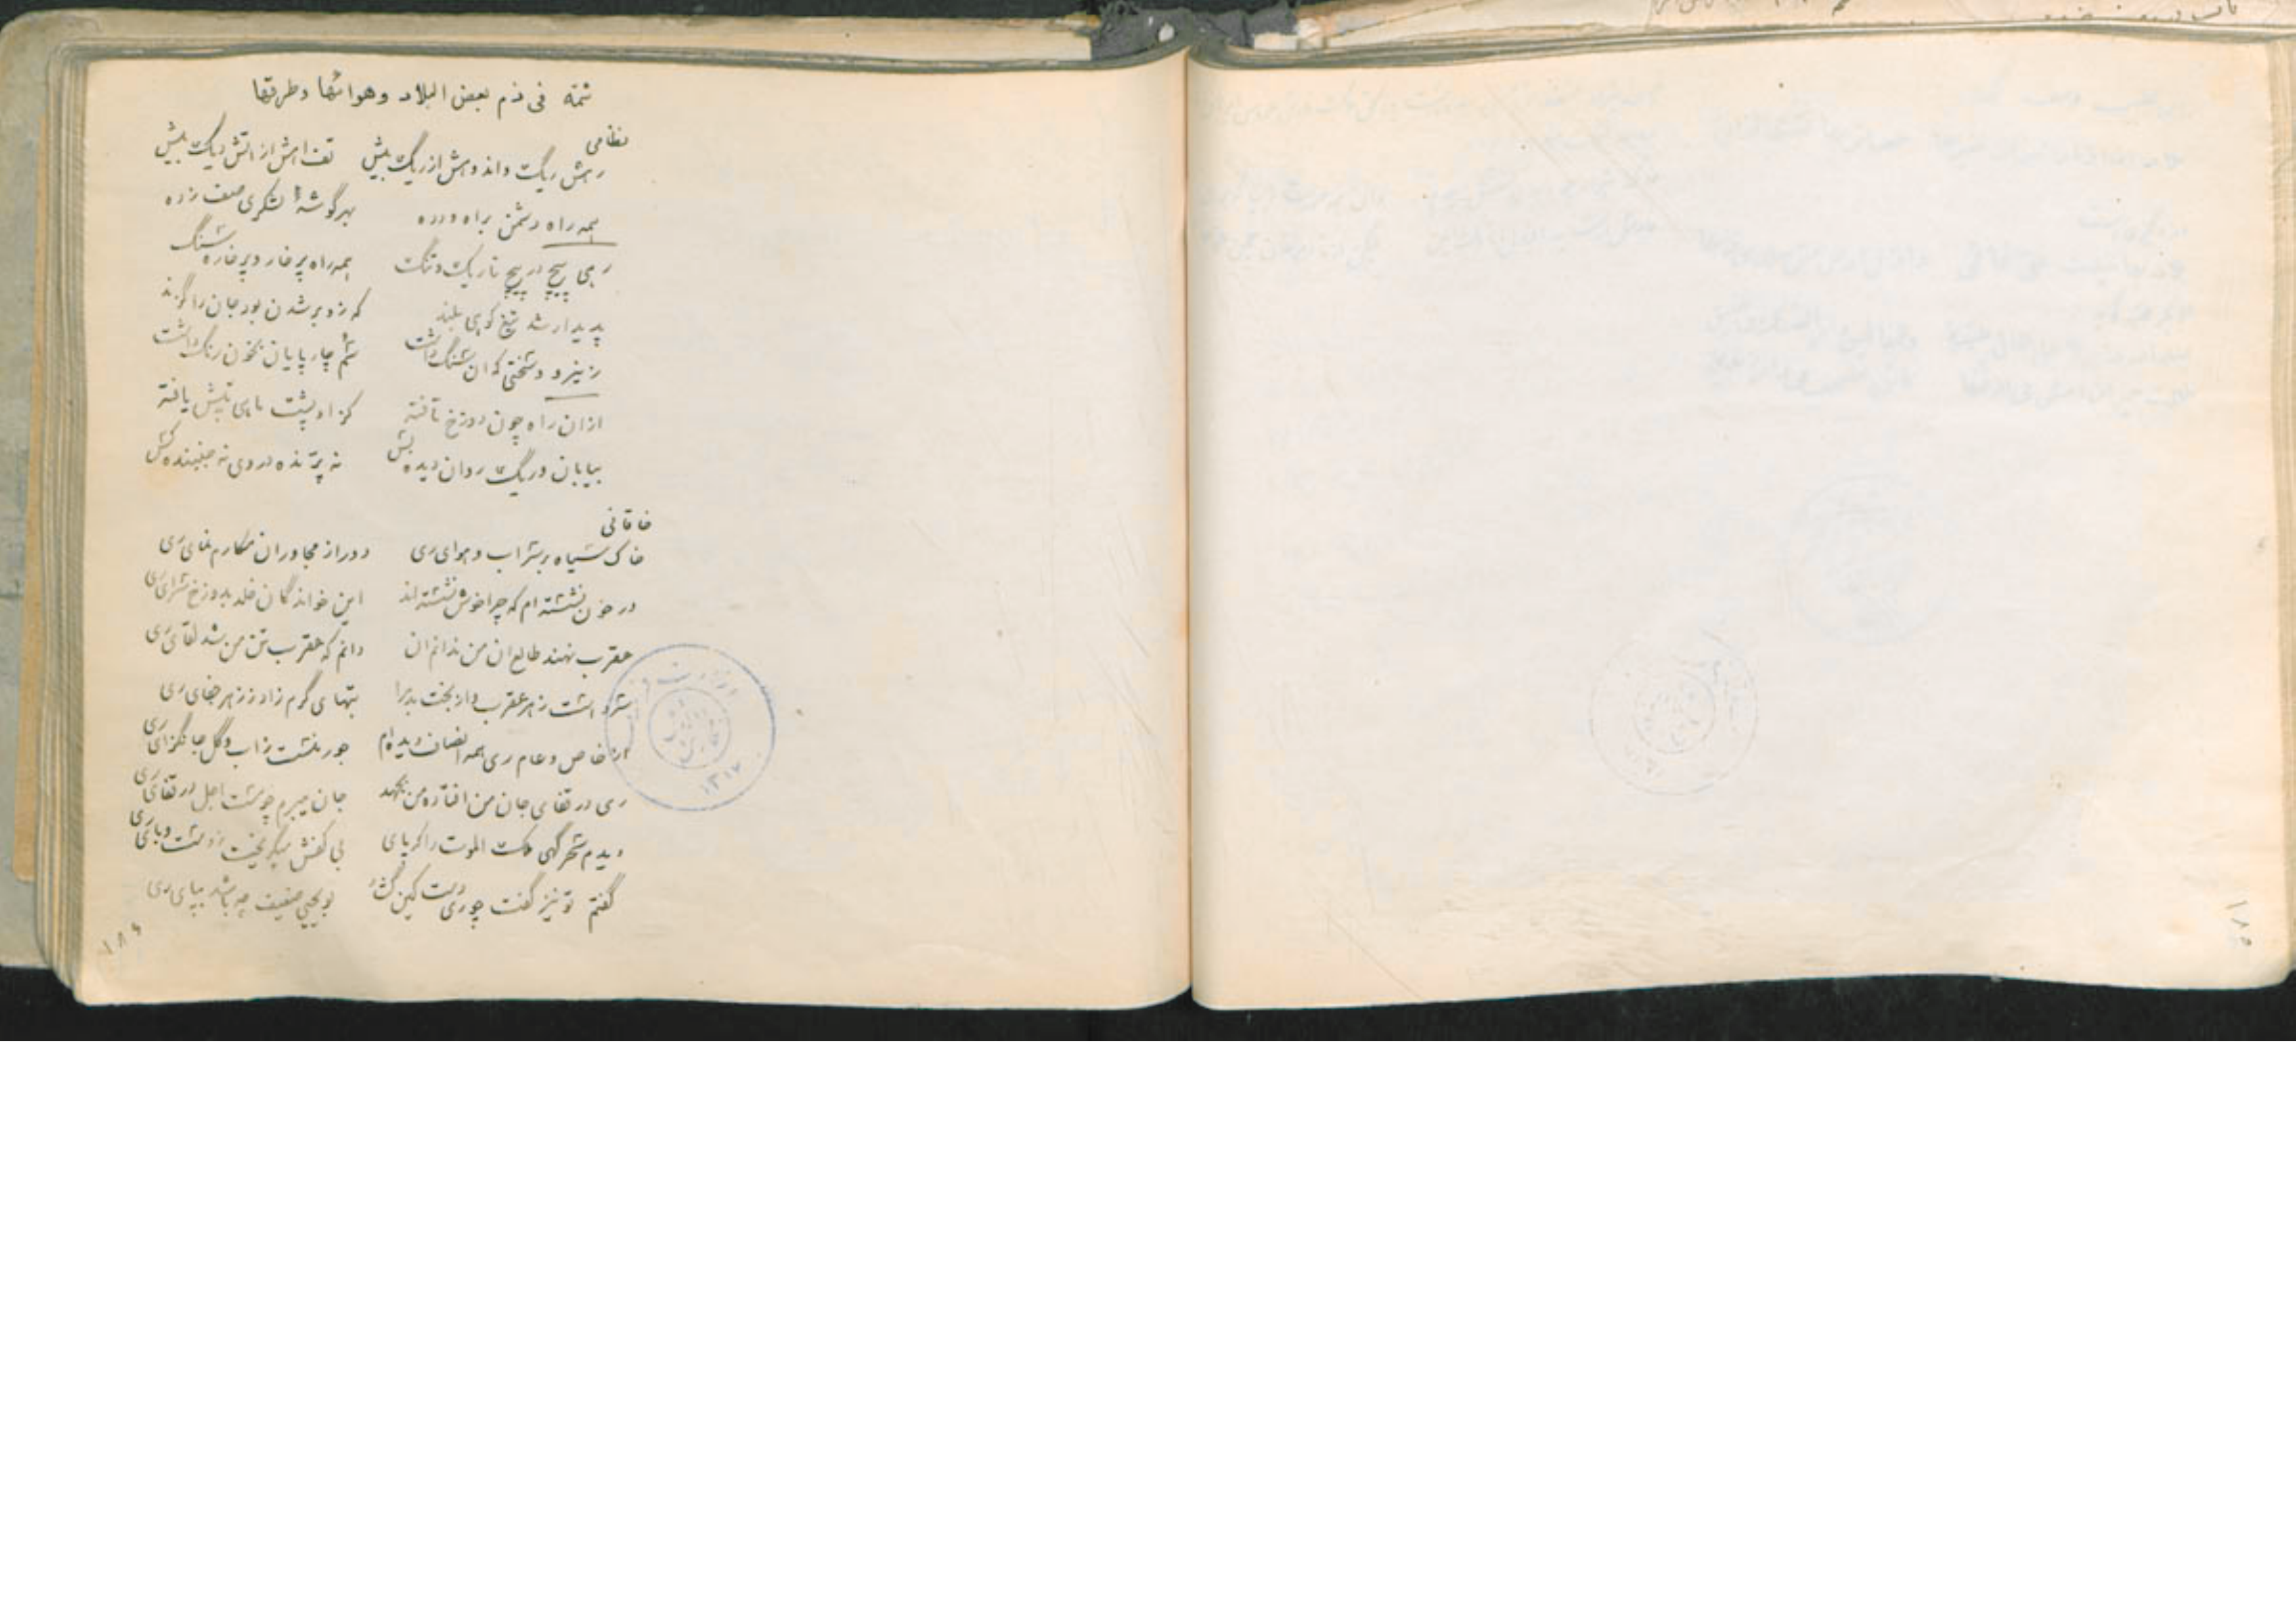 شمّه فی ذم بعض البلاد وهوائها وطرقها
نظامی
رهش ریگ و اندوهش از ریگ بیش تف اهش از اتش دیگ بیش
همه راه دشمن براه و دره بهر گوشهٔ لشکری صف زده
رهی پیچ در پیچ تاریک و تنگ همه راه پر خار و پر خاره سنگ
پدیدار شد تیغ کوهی بلند که زو بر شدن بود جان را گزند
ز تیزی و سختی که ان سنگ داشت سُم چارپایان بخون رنگ داشت
ازان راه چون دوزخ تافته کزاو پشت ماهی تپش یافته
بیابان و ریگ روان دید و بس نه پرّنده در وی نه جنبنده کس
خاقانی
خاک سیاه بر سر اب و هوای ری دور از مجاوران مکارم نمای ری
در خون نشسته ام که چرا خوش نشسته اند این خواندگان خلد بدوزخ سرای ری
عقرب نهند طالع ان من ندانم ان دانم که عقرب تن من شد لقای ری
سرد است زهر عقرب و از بخت بد مرا تبهای گرم زاد ز زهر جفای ری
از خاص و عام ری همه انصاف دیده ام جور منست ز اب و گل جانگزای ری
ری در قفای جان من افتاد و من بجهد جان میبرم چو تست اجل در قفای ری
دیدم سحرگهی ملک الموت را که پای بی کفش میگریخت ز دست وبای ری
گفتم تو نیز گفت چو ری دست کین گشود بویحیی ضعیف چه باشد بپای ری
وزارت
۱۳۱۷
۱۸۶